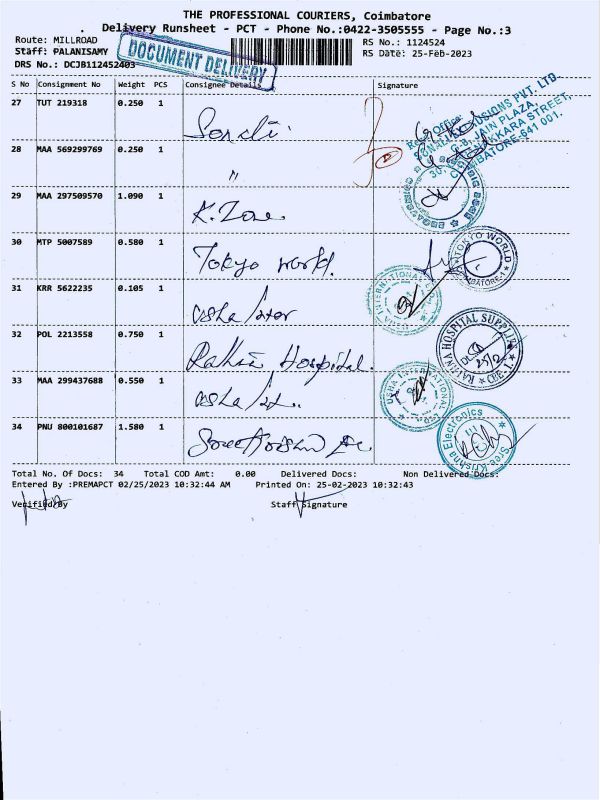 THE PROFESSIONAL COURIERS, Coimbatore
Delivery Runsheet - PCT - Phone No.:0422-3505555 - Page No.:3
Route: MILLROAD
Staff: PALANISAMY
DRS No.: DCJB112452403
DOCUMENT DELIVERY
RS No.: 1124524
RS Date: 25-Feb-2023
S No Consignment No Weight PCS Consignee Details Signature
27 TUT 219318 0.250 1
28 MAA 569299769 0.250 1 "
29 MAA 297509570 1.090 1 K. Zone
30 MTP 5007589 0.580 1 Tokyo world.
31 KRR 5622235 0.105 1 Usha Inter
32 POL 2213558 0.750 1 Rathna Hospital.
33 MAA 299437688 0.550 1 Usha
34 PNU 800101687 1.580 1 Sree
Regd. Office:
PVT. LTD.
JAIN PLAZA,
STREET,
COIMBATORE-641 001.
TOKYO WORLD
INTERNATIONAL
RATHNA HOSPITAL SUPPLIES
CBE-1
USHA INTERNATIONAL
Sree Krishna Electronics
Total No. Of Docs: 34 Total COD Amt: 0.00 Delivered Docs: Non Delivered Docs:
Entered By :PREMAPCT 02/25/2023 10:32:44 AM Printed On: 25-02-2023 10:32:43
Verified By Staff Signature